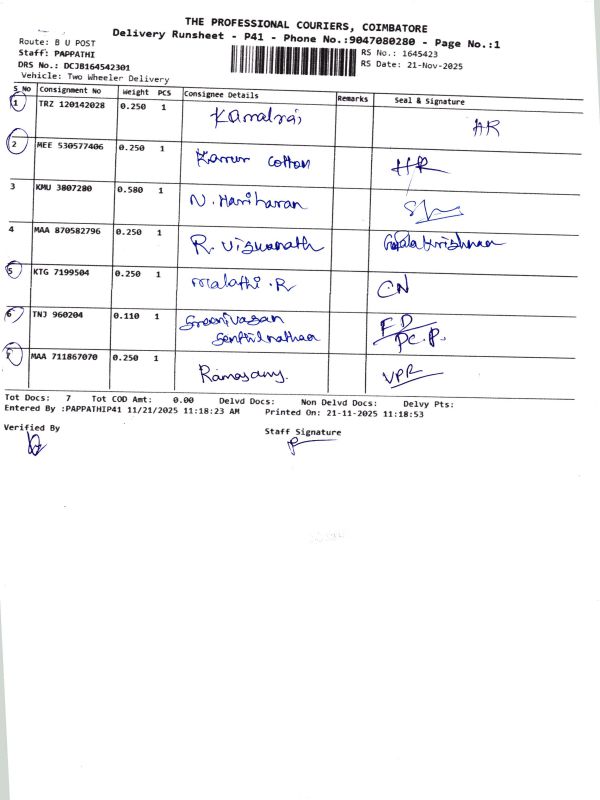 THE PROFESSIONAL COURIERS, COIMBATORE
Delivery Runsheet - P41 - Phone No.:9047080280 - Page No.:1
Route: B U POST
Staff: PAPPATHI
RS No.: 1645423
DRS No.: DCJB164542301
RS Date: 21-Nov-2025
Vehicle: Two Wheeler Delivery
S No Consignment No Weight PCS Consignee Details Remarks Seal & Signature
1 TRZ 120142028 0.250 1 Kamalraj AR
2 MEE 530577406 0.250 1 Karur Cotton HR
3 KMU 3807280 0.580 1 N. Hariharan
4 MAA 870582796 0.250 1 R. Viswanath
5 KTG 7199504 0.250 1 Malathi .R CN
6 TNJ 960204 0.110 1 Sreenivasan FD
Senthilnathan P.C.P.
7 MAA 711867070 0.250 1 Ramasamy. VPR
Tot Docs: 7 Tot COD Amt: 0.00 Delvd Docs: Non Delvd Docs: Delvy Pts:
Entered By :PAPPATHIP41 11/21/2025 11:18:23 AM Printed On: 21-11-2025 11:18:53
Verified By Staff Signature